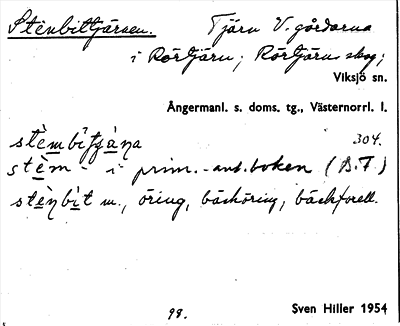 Stenbittjärnen. Tjärn V. gårdarna
i Rörtjärn; Rörtjärns skog;
Viksjö sn.
Ångermanl. s. doms. tg., Västernorrl. l.
304.
stèm- i prim.-ant.boken (B.F.)
stènbìt m., öring, bäcköring, bäckforell.
98. Sven Hiller 1954